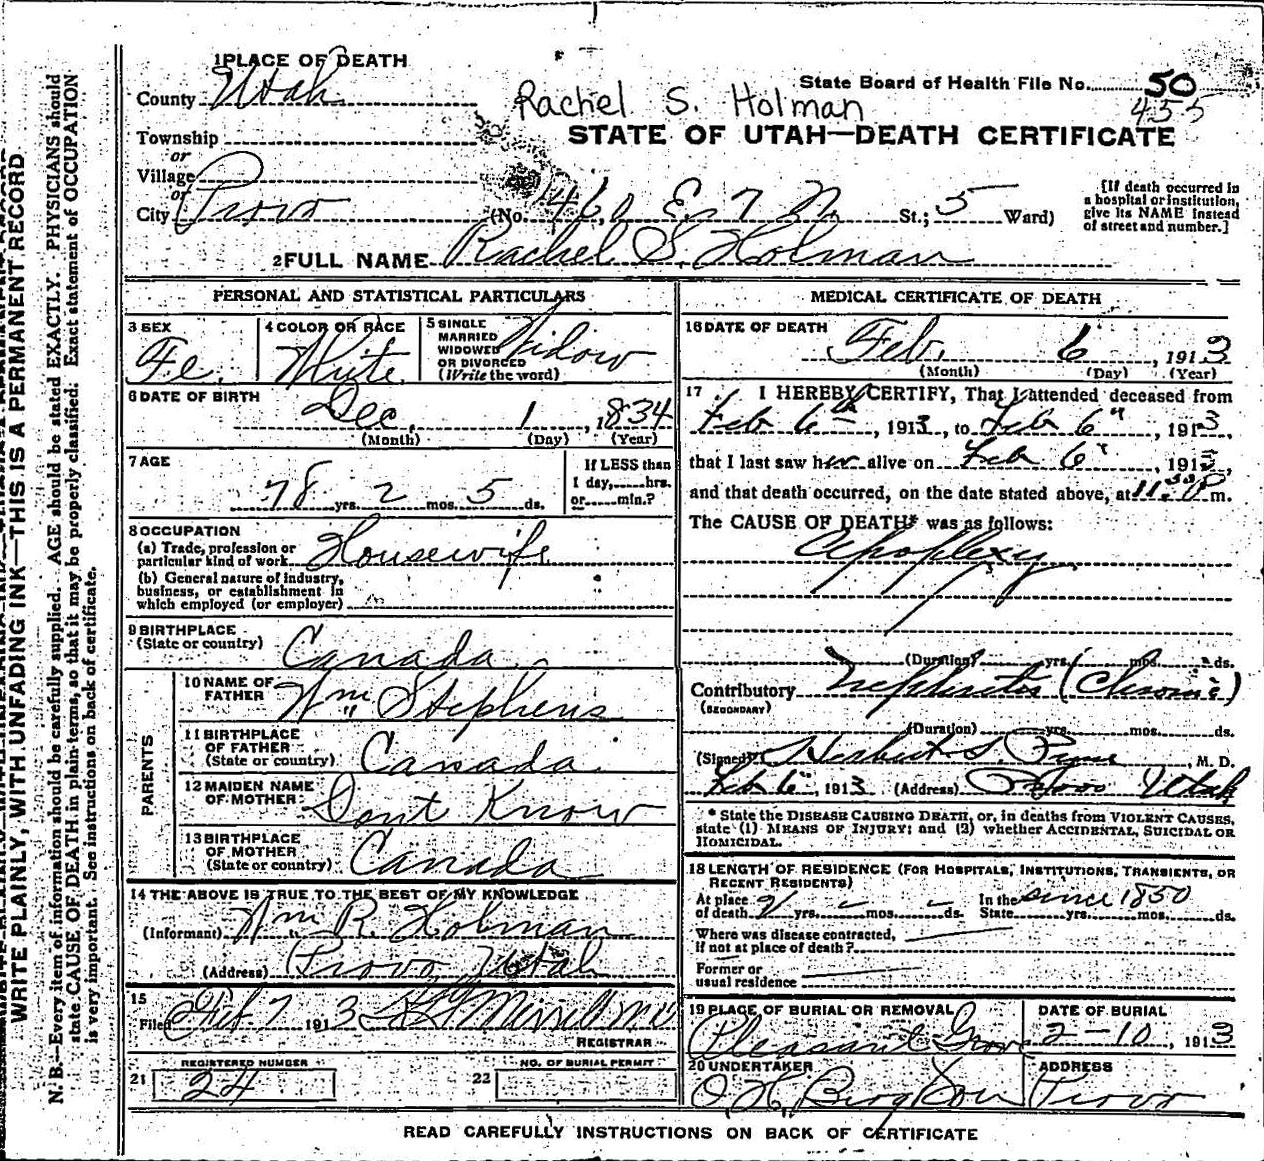 1 PLACE OF DEATH
County Utah
State Board of Health File No. 50
455
Rachel S. Holman
Township
STATE OF UTAH—DEATH CERTIFICATE
or
Village
or
City Provo (No. 460 E. 7 N. St.; 5 Ward)
[If death occurred in
a hospital or institution,
give its NAME instead
of street and number.]
2 FULL NAME Rachel S. Holman
PERSONAL AND STATISTICAL PARTICULARS
3 SEX
Fe.
4 COLOR OR RACE
White
5 SINGLE
MARRIED
WIDOWED
OR DIVORCED
(Write the word)
Widow
6 DATE OF BIRTH
Dec. 1, 1834
(Month) (Day) (Year)
7 AGE
78 yrs. 2 mos. 5 ds.
If LESS than
1 day, hrs.
or min.?
8 OCCUPATION
(a) Trade, profession or
particular kind of work Housewife
(b) General nature of industry,
business, or establishment in
which employed (or employer)
9 BIRTHPLACE
(State or country) Canada
PARENTS
10 NAME OF
FATHER Wm Stephens
11 BIRTHPLACE
OF FATHER
(State or country) Canada
12 MAIDEN NAME
OF MOTHER Dont Know
13 BIRTHPLACE
OF MOTHER
(State or country) Canada
14 THE ABOVE IS TRUE TO THE BEST OF MY KNOWLEDGE
(Informant) Wm R. Holman
(Address) Provo Utah
15
Filed Feb. 7 1913 Merrell MD
REGISTRAR
21 REGISTERED NUMBER
24
22 NO. OF BURIAL PERMIT
MEDICAL CERTIFICATE OF DEATH
16 DATE OF DEATH
Feb. 6, 1913
(Month) (Day) (Year)
17 I HEREBY CERTIFY, That I attended deceased from
Feb 6th, 1913, to Feb 6", 1913,
that I last saw her alive on Feb 6", 1913,
and that death occurred, on the date stated above, at 11:30 P m.
The CAUSE OF DEATH* was as follows:
Apoplexy
(Duration) yrs. mos. ds.
Contributory Nephritis (Chronic)
(SECONDARY)
(Duration) yrs. mos. ds.
(Signed) Herbert S. Pyne, M. D.
Feb 6", 1913 (Address) Provo Utah
* State the DISEASE CAUSING DEATH, or, in deaths from VIOLENT CAUSES,
state (1) MEANS OF INJURY; and (2) whether ACCIDENTAL, SUICIDAL OR
HOMICIDAL.
18 LENGTH OF RESIDENCE (FOR HOSPITALS, INSTITUTIONS, TRANSIENTS, OR
RECENT RESIDENTS)
At place
of death yrs. – mos. – ds.
In the
State since 1850 yrs. mos. ds.
Where was disease contracted,
if not at place of death?
Former or
usual residence
19 PLACE OF BURIAL OR REMOVAL
Pleasant Grove
DATE OF BURIAL
2-10, 1913
20 UNDERTAKER
O. H. Berg & Son
ADDRESS
Provo
READ CAREFULLY INSTRUCTIONS ON BACK OF CERTIFICATE
WRITE PLAINLY, WITH UNFADING INK—THIS IS A PERMANENT RECORD
N. B.—Every item of information should be carefully supplied. AGE should be stated EXACTLY. PHYSICIANS should
state CAUSE OF DEATH in plain terms, so that it may be properly classified. Exact statement of OCCUPATION
is very important. See instructions on back of certificate.